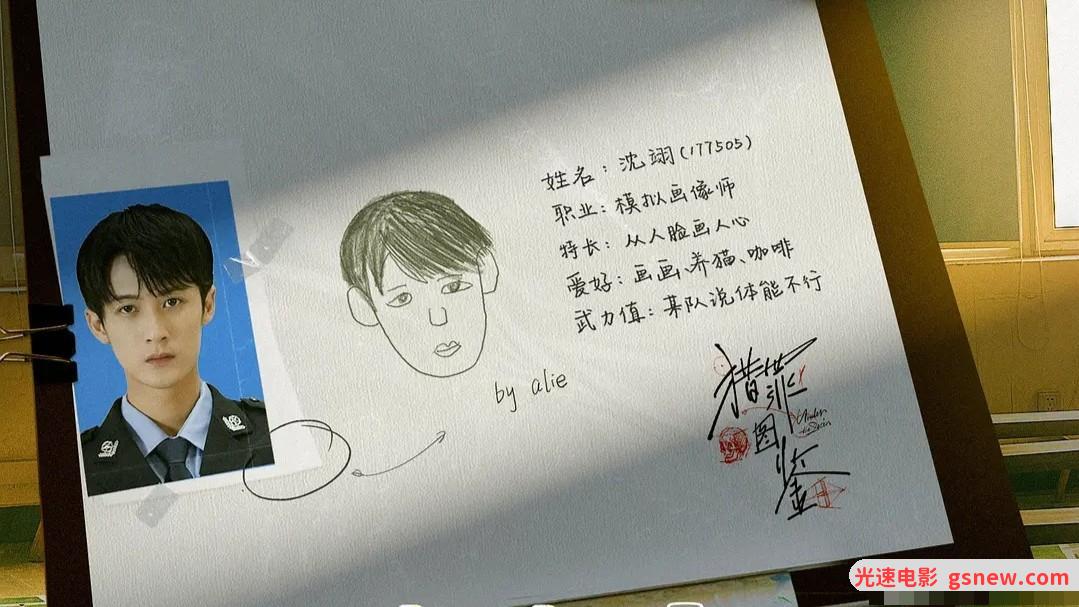 姓名：沈翊(177505)
职业：模拟画像师
特长：从人脸画人心
爱好：画画、养猫、咖啡
武力值：某队说体能不行
by alie
猎罪图鉴
Under the Skin
光速电影 gsnew.com